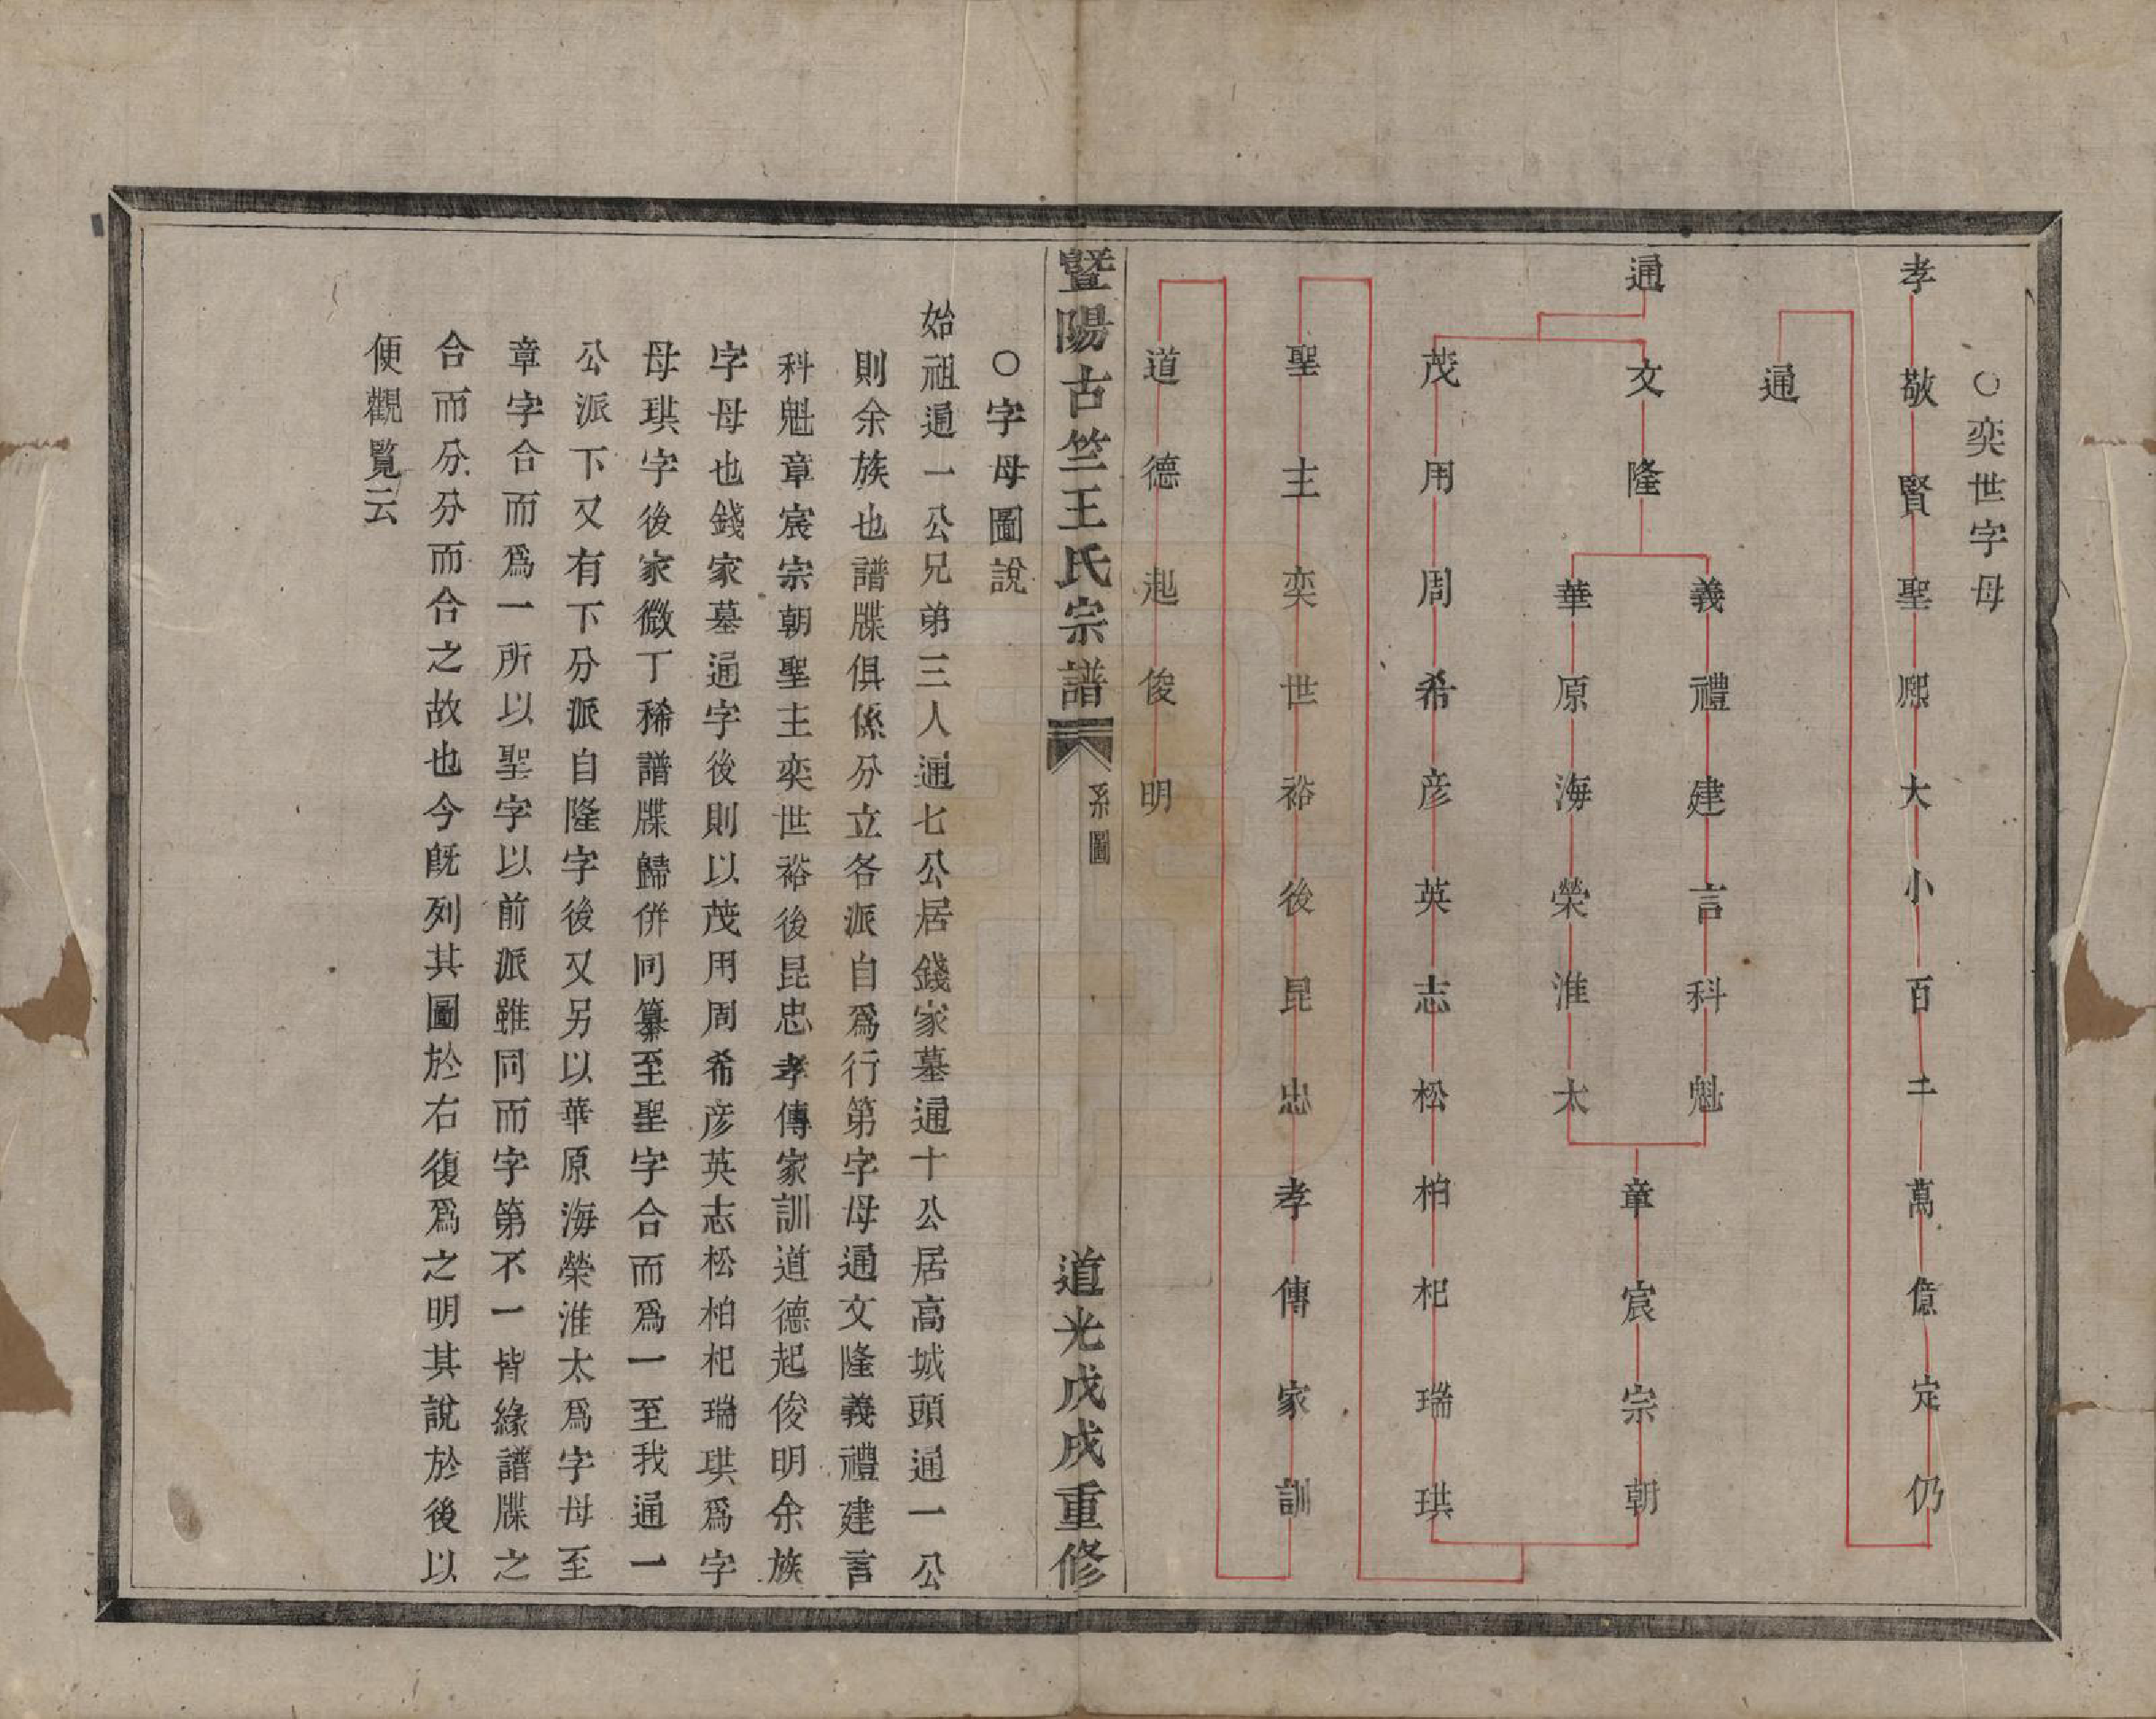 ○奕世字母
孝敬賢聖熙大小百千萬億定仍
通
通
文隆
義禮建言科魁
華原海榮淮太
章宸宗朝
茂用周希彦英志松柏杞瑞珙
聖主奕世裕後昆忠孝傳家訓
道德起俊明
暨陽古竺王氏宗譜 系圖 道光戊戌重修
○字母圖說
始祖通一公兄弟三人通七公居錢家墓通十公居高城頭通一公
則余族也譜牒俱係分立各派自爲行第字母通文隆義禮建言
科魁章宸宗朝聖主奕世裕後昆忠孝傳家訓道德起俊明余族
字母也錢家墓通字後則以茂用周希彦英志松柏杞瑞珙爲字
母珙字後家微丁稀譜牒歸併同纂至聖字合而爲一至我通一
公派下又有下分派自隆字後又另以華原海榮淮太爲字母至
章字合而爲一所以聖字以前派雖同而字第不一皆緣譜牒之
合而分分而合之故也今旣列其圖於右復爲之明其說於後以
便觀覽云